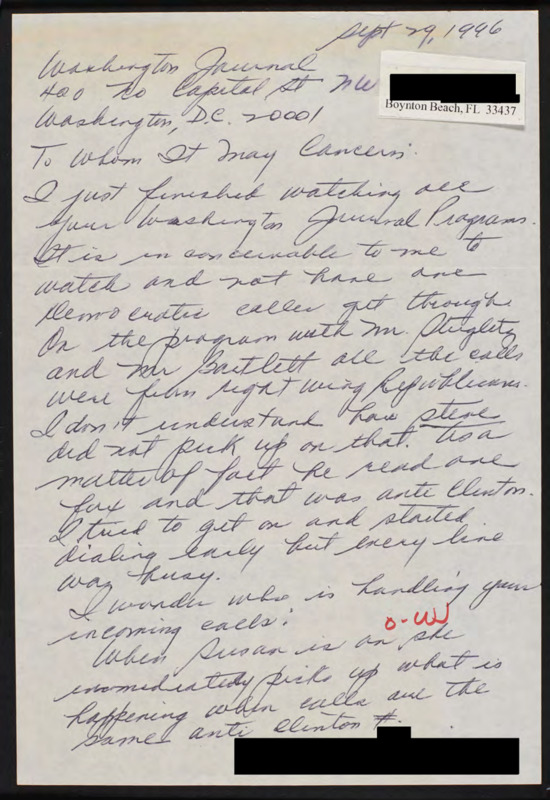 Sept 29, 1996
Washington Journal
400 No Capital St NW
Boynton Beach, FL 33437
Washington, D.C. 20001
To Whom It May Concern:
I just finished watching all
your Washington Journal Programs.
It is inconceivable to me to
watch and not have one
Democratic caller get through.
On the program with Mr. Stiglitz
and Mr Bartlett all the calls
were from right wing Republicans.
I don't understand how Steve
did not pick up on that. As a
matter of fact he read one
fax and that was anti Clinton.
I tried to get on and started
dialing early but every line
was busy.
I wonder who is handling your
incoming calls?
O-W
When Susan is on she
immediately picks up what is
happening when calls are the
same anti Clinton